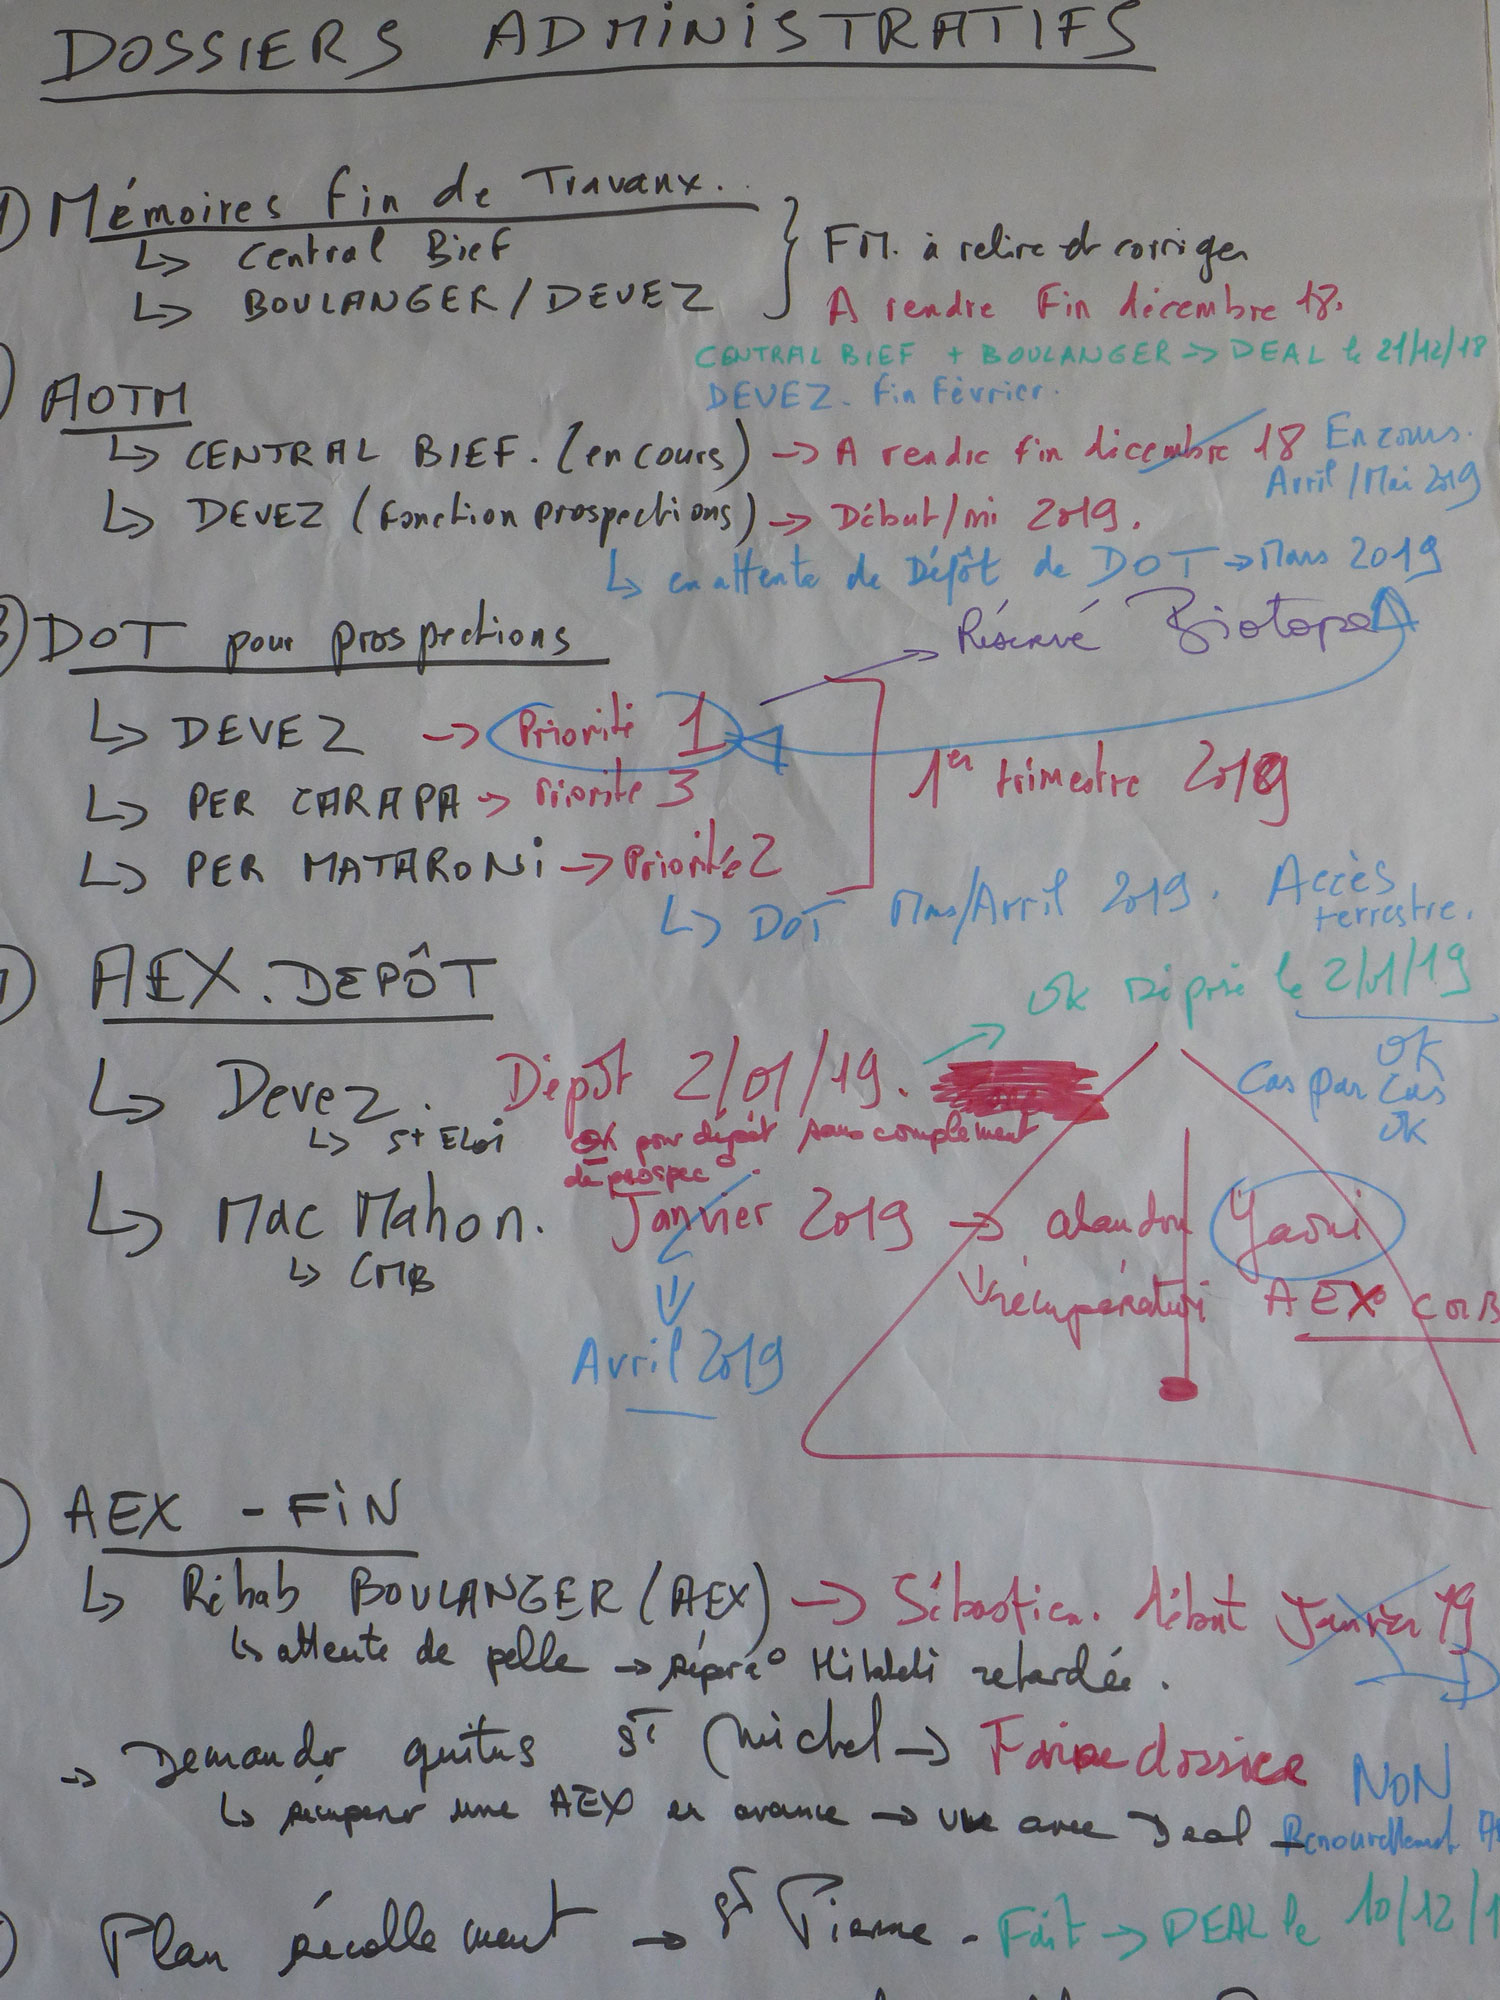 DOSSIERS ADMINISTRATIFS
1) Mémoires fin de Travaux.
↳ Central Bief
↳ BOULANGER / DEVEZ
FM. à relire et corriger
A rendre Fin décembre 18.
CENTRAL BIEF + BOULANGER → DEAL le 21/12/18
DEVEZ. Fin Février.
AOTM
↳ CENTRAL BIEF. (en cours) → A rendre fin décembre 18 En cours.
Avril / Mai 2019
↳ DEVEZ (fonction prospections) → Début/mi 2019.
↳ en attente de Dépôt de DOT → Mars 2019
3) DOT pour prospections
Réservé Biotope
↳ DEVEZ → Priorité 1
↳ PER CARAPA → Priorité 3
1er trimestre 2019
↳ PER MATARONI → Priorité 2
↳ DOT Mars/Avril 2019. Accès
terrestre.
AEX. DEPÔT
OK Déposé le 2/01/19
↳ Devez. Dépôt 2/01/19.
OK
Cas par Cas
OK
↳ St Eloi
OK pour dépôt sans complément
de prospec°
↳ Mac Mahon. Janvier 2019 → abandon Yaoni
↳ CMB
↳ récupération AEX CMB
⇓
Avril 2019
AEX - FiN
↳ Réhab BOULANGER (AEX) → Sébastien. début Janvier 19
↳ attente de pelle → répara° Hitachi retardée.
→ Demander quitus St Michel → Faire dossier NON
↳ récupérer une AEX en avance → vue avec Deal _ Renouvellement
Plan récollement → St Pierre - Fait → DEAL le 10/12/1